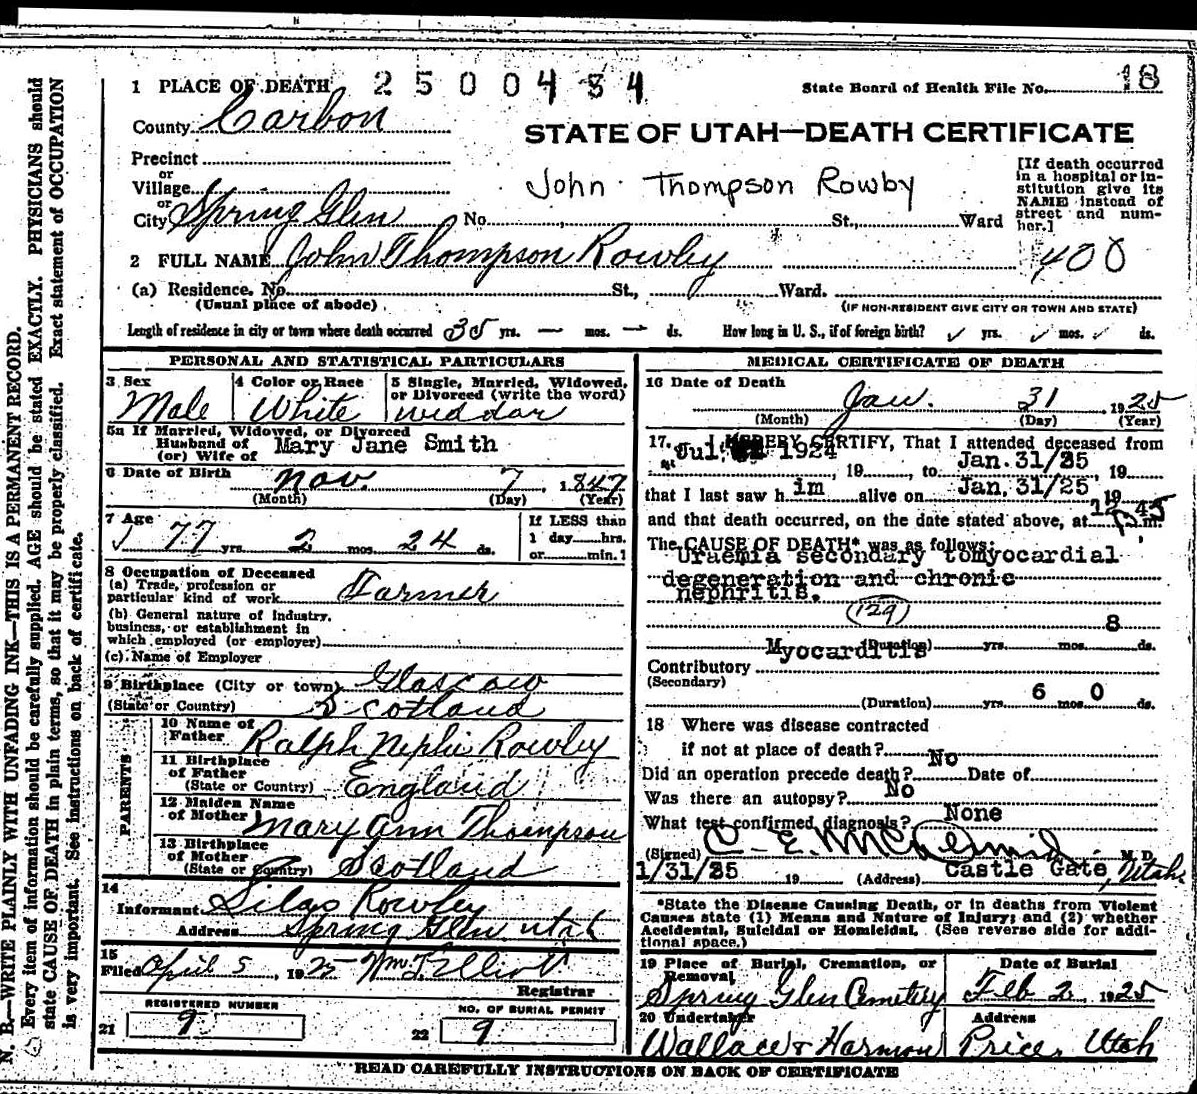 1 PLACE OF DEATH 2500434
State Board of Health File No. 18
County Carbon
STATE OF UTAH—DEATH CERTIFICATE
Precinct
or
Village
or
City Spring Glen No. St., Ward
John Thompson Rowby
[If death occurred
in a hospital or in-
stitution give its
NAME instead of
street and num-
ber.]
2 FULL NAME John Thompson Rowley
400
(a) Residence. No. St., Ward.
(Usual place of abode)
(IF NON-RESIDENT GIVE CITY OR TOWN AND STATE)
Length of residence in city or town where death occurred 35 yrs. — mos. — ds. How long in U. S., if of foreign birth? ✓ yrs. ✓ mos. ✓ ds.
PERSONAL AND STATISTICAL PARTICULARS
3 Sex
Male
4 Color or Race
White
5 Single, Married, Widowed,
or Divorced (write the word)
widdor
5a If Married, Widowed, or Divorced
Husband of
(or) Wife of Mary Jane Smith
6 Date of Birth Nov. 7, 1847
(Month) (Day) (Year)
7 Age
77 yrs. 2 mos. 24 ds.
If LESS than
1 day hrs.
or min.?
8 Occupation of Deceased
(a) Trade, profession or
particular kind of work Farmer
(b) General nature of Industry,
business, or establishment in
which employed (or employer)
(c) Name of Employer
9 Birthplace (City or town) Glascow
(State or Country) Scotland
PARENTS
10 Name of
Father Ralph Nephi Rowley
11 Birthplace
of Father
(State or Country) England
12 Maiden Name
of Mother Mary Ann Thompson
13 Birthplace
of Mother
(State or Country) Scotland
14
Informant Silas Rowley
Address Spring Glen Utah
15
Filed April 5, 1925 Wm T. Elliott
Registrar
REGISTERED NUMBER
21 9
NO. OF BURIAL PERMIT
22 9
MEDICAL CERTIFICATE OF DEATH
16 Date of Death
Jan. 31 1925
(Month) (Day) (Year)
17. I HEREBY CERTIFY, That I attended deceased from
Jul. 1924 19 , to Jan. 31/25 19
that I last saw him alive on Jan. 31/25 19
and that death occurred, on the date stated above, at 12 45 P m.
The CAUSE OF DEATH* was as follows:
Uraemia secondary tomyocardial
degeneration and chronic
nephritis.
(129)
8
(Duration) yrs. mos. ds.
Contributory Myocarditis
(Secondary)
6 0
(Duration) yrs. mos. ds.
18 Where was disease contracted
if not at place of death?
Did an operation precede death? No Date of
Was there an autopsy? No
What test confirmed diagnosis? None
(Signed) C. E. M. D.
1/31/25 19 (Address) Castle Gate, Utah
*State the Disease Causing Death, or in deaths from Violent
Causes state (1) Means and Nature of Injury; and (2) whether
Accidental, Suicidal or Homicidal. (See reverse side for addi-
tional space.)
19 Place of Burial, Cremation, or
Removal
Spring Glen Cemetery
Date of Burial
Feb 2 1925
20 Undertaker
Wallace & Harmon
Address
Price, Utah
READ CAREFULLY INSTRUCTIONS ON BACK OF CERTIFICATE
N. B.—WRITE PLAINLY WITH UNFADING INK—THIS IS A PERMANENT RECORD.
Every item of information should be carefully supplied. AGE should be stated EXACTLY. PHYSICIANS should
state CAUSE OF DEATH in plain terms, so that it may be properly classified. Exact statement of OCCUPATION
is very important. See instructions on back of certificate.